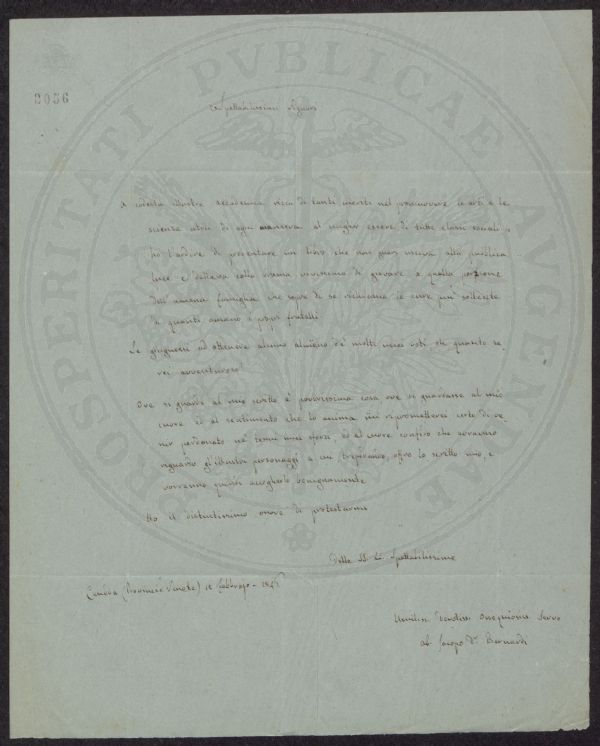 2056
PROSPERITATI PVBLICAE AVGENDAE
Spettabilissimi Signori
A codesta illustre Accademia, ricca di tanti meriti nel promuovere le arti e le
scienze utili di ogni maniera al miglior essere di tutte classi sociali,
ho l'ardire di presentare un libro che non guari usciva alla pubblica
luce e dettava colla brama vivissima di giovare a quella porzione
dell'umana famiglia che sopra di se richiama le cure più sollecite
di quanti amano i propj fratelli.
Se giugnessi ad ottenere alcuno almeno de' molti miei voti oh quanto sa-
rei avventuroso!
Ove si guardi al mio scritto è poverissima cosa ove si guardasse al mio
cuore ed al sentimento che lo anima mi riprometterei certo di ve-
nir perdonato ne' tenui miei sforzi, ed al cuore confido che avranno
riguardo gl'illustri personaggi a cui trepidando offro lo scritto mio, e
vorranno quindi accoglierlo benignamente.
Ho il distintissimo onore di protestarmi
Delle SS. LL. Spettabilissime
Ceneda (Provincie Venete) Febbrajo - 184
Umiliss. Devotiss. Ossequiosiss. Servo
ab. Jacopo Dr. Bernardi